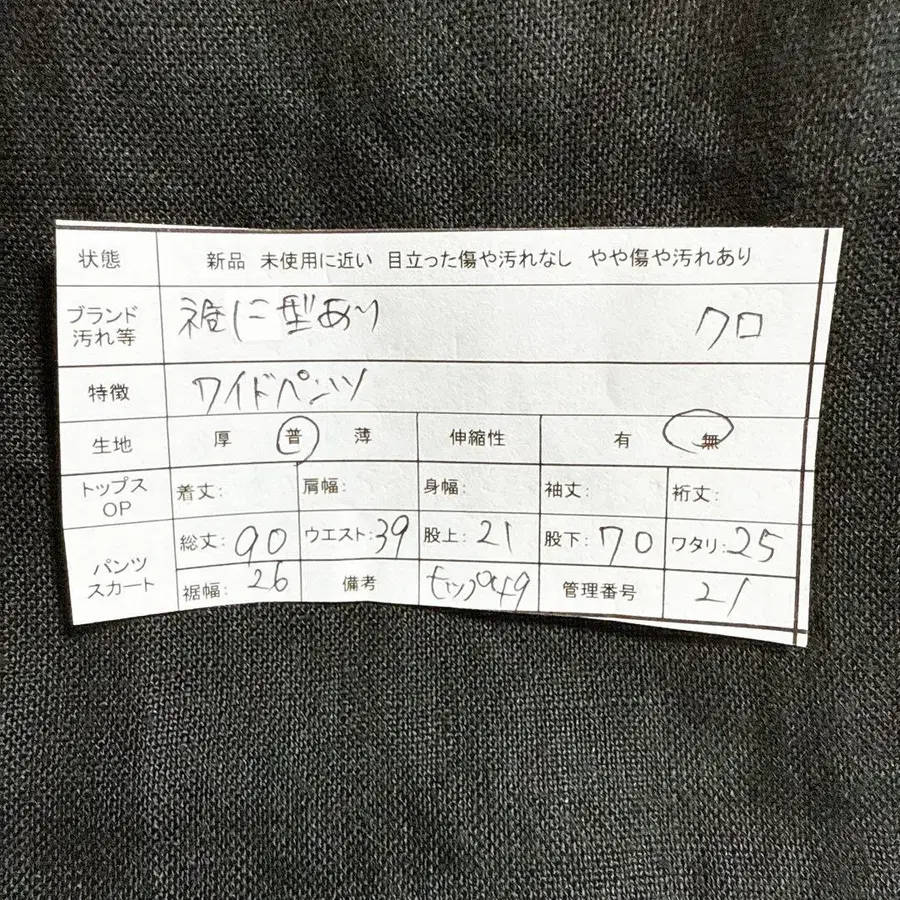 状態 新品 未使用に近い 目立った傷や汚れなし やや傷や汚れあり
ブランド
汚れ等 裾に型あり クロ
特徴 ワイドパンツ
生地 厚 普 薄 伸縮性 有 無
トップス
OP 着丈: 肩幅: 身幅: 袖丈: 裄丈:
パンツ
スカート 総丈:90 ウエスト:39 股上:21 股下:70 ワタリ:25
裾幅:26 備考 ヒップ49 管理番号 21